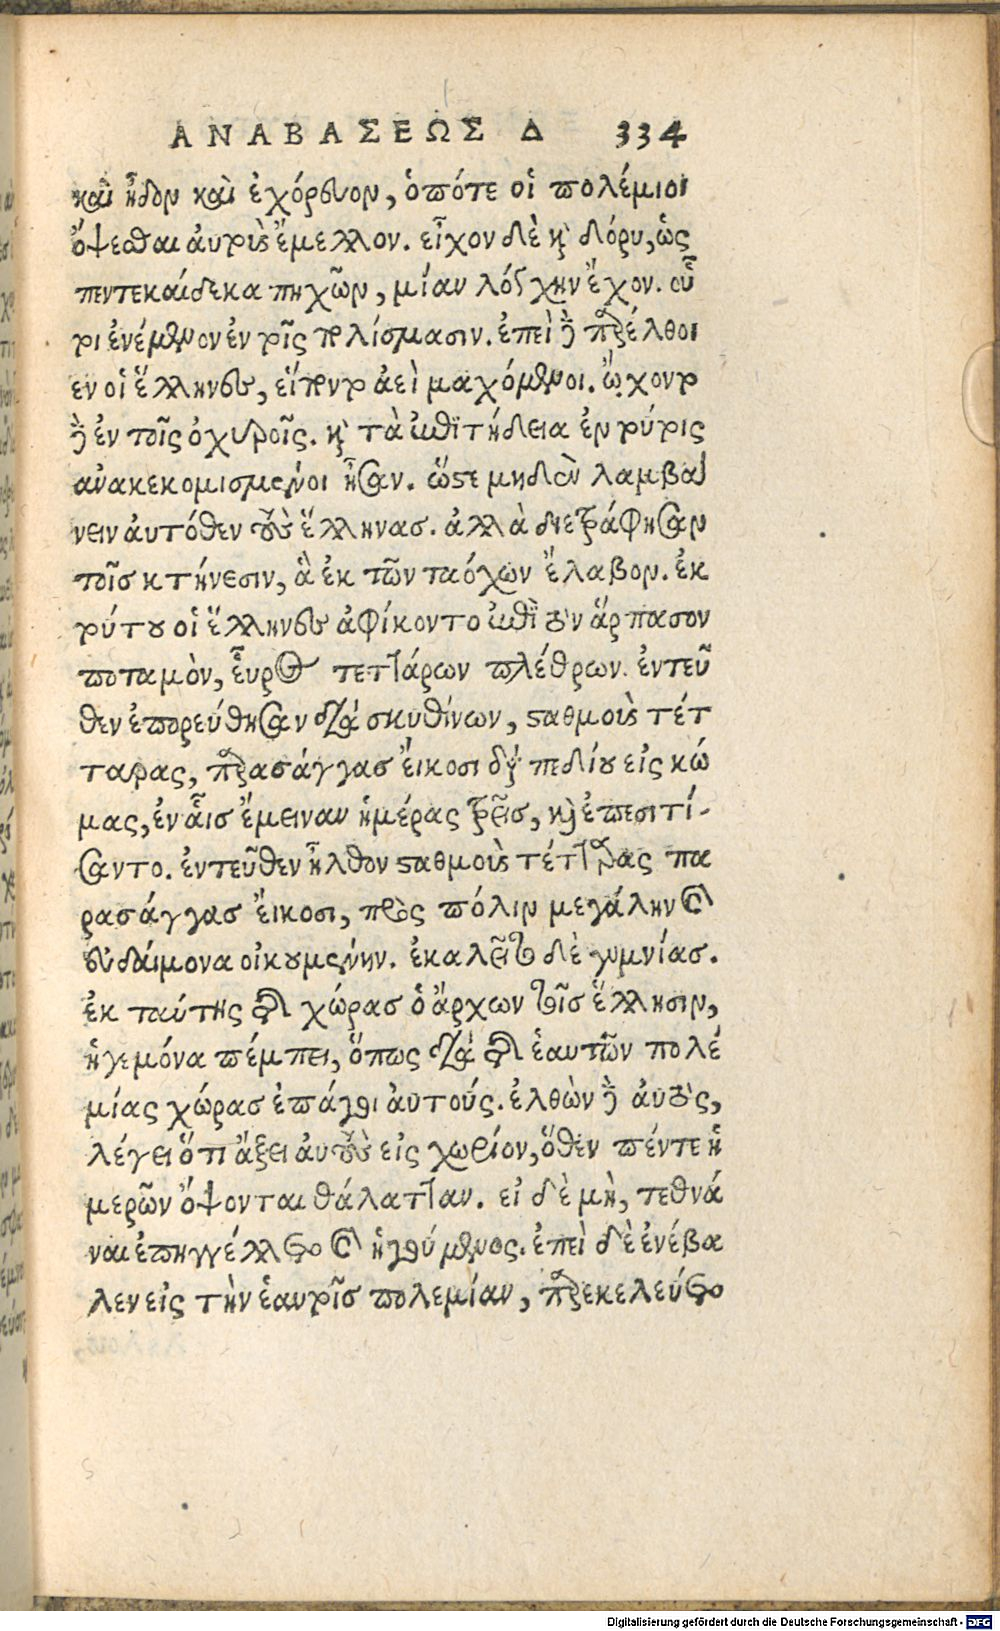 ΑΝΑΒΑΣΕΩΣ Δ 334
καὶ ᾖδον καὶ ἐχόρευον, ὁπότε οἱ πολέμιοι
ὄψεσθαι αὐτοὺς ἔμελλον. εἶχον δὲ κὶ δόρυ, ὡς
πεντεκαίδεκα πηχῶν, μίαν λόγχην ἔχον. οὗ
τοι ἐνέμενον ἐν τοῖς πολίσμασιν. ἐπεὶ δὲ παρέλθοι
εν οἱ ἕλληνες, εἵποντο ἀεὶ μαχόμενοι. ᾤχοντο
δὲ ἐν τοῖς ὀχυροῖς. κὶ τὰ ἐπιτήδεια ἐν τούτοις
ἀνακεκομισμένοι ἦσαν. ὥστε μηδὲν λαμβά
νειν αὐτόθεν τοὺς ἕλληνας. ἀλλὰ διετράφησαν
τοῖς κτήνεσιν, ἃ ἐκ τῶν ταόχων ἔλαβον. ἐκ
τούτου οἱ ἕλληνες ἀφίκοντο ἐπὶ τὸν ἅρπασον
ποταμὸν, εὖρος τεττάρων πλέθρων. ἐντεῦ
θεν ἐπορεύθησαν διὰ σκυθίνων, σταθμοὺς τέτ
ταρας, παρασάγγας εἴκοσι διὰ πεδίου εἰς κώ
μας, ἐν αἷς ἔμειναν ἡμέρας τρεῖς, κὶ ἐπεσιτί-
σαντο. ἐντεῦθεν ἦλθον σταθμοὺς τέτταρας πα
ρασάγγας εἴκοσι, πρὸς πόλιν μεγάλην καὶ
εὐδαίμονα οἰκουμένην. ἐκαλεῖτο δὲ γυμνίας.
ἐκ ταύτης τῆς χώρας ὁ ἄρχων τοῖς ἕλλησιν,
ἡγεμόνα πέμπει, ὅπως διὰ τῆς ἑαυτῶν πολε
μίας χώρας ἐπάγοι αὐτούς. ἐλθὼν δὲ αὐτὸς,
λέγει ὅτι ἄξει αὐτοὺς εἰς χωρίον, ὅθεν πέντε ἡ
μερῶν ὄψονται θάλατταν. εἰ δὲ μὴ, τεθνά
ναι ἐπηγγέλλετο καὶ ἡγούμενος. ἐπεὶ δὲ ἐνέβα
λεν εἰς τὴν ἑαυτοῖς πολεμίαν, παρεκελεύετο
Digitalisierung gefördert durch die Deutsche Forschungsgemeinschaft - DFG